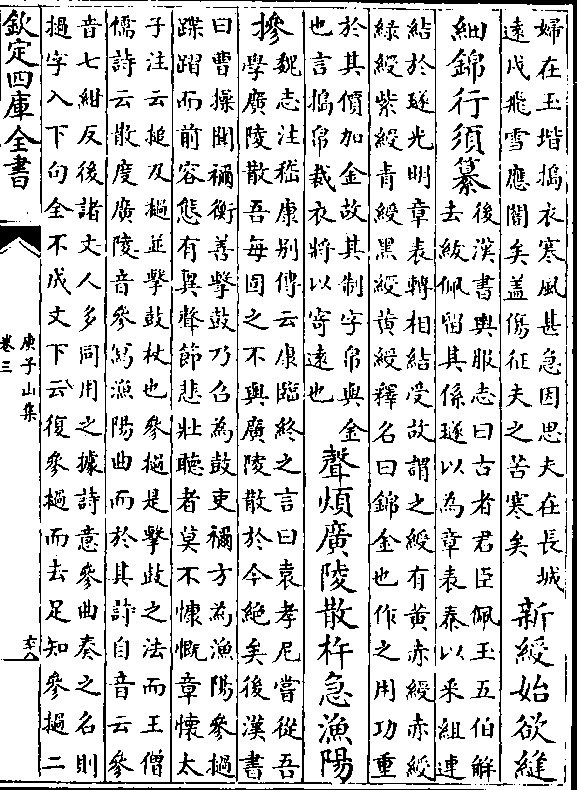 婦在玉堦搗衣寒風甚急因思夫在長城
遠戍飛雪應闇矣盖傷征夫之苦寒矣
新綬始欲縫
細錦行須纂
後漢書輿服志曰古者君臣佩玉五伯解
去紱佩留其係璲以為章表秦以采組連
結於璲光明章表轉相結受故謂之綬有黄赤綬赤綬
緑綬紫綬青綬黑綬黄綬釋名曰錦金也作之用功重
於其價加金故其制字帛與金
也言搗帛裁衣將以寄遠也
聲煩廣陵散杵急漁陽
摻
魏志注嵇康别傳云康臨終之言曰袁孝尼嘗從吾
學廣陵散吾每固之不與廣陵散於今絶矣後漢書
曰曹操聞禰衡善擊鼓乃召為鼓吏禰方為漁陽參撾
蹀躞而前容態有異聲節悲壯聽者莫不慷慨章懷太
子注云搥及撾並擊鼓杖也參撾是擊鼓之法而王僧
儒詩云散度廣陵音參寫漁陽曲而於其詩自音云參
音七紺反後諸文人多同用之據詩意參曲奏之名則
撾字入下句全不成文下云復參撾而去足知參撾二
欽定四庫全書
庾子山集
卷三